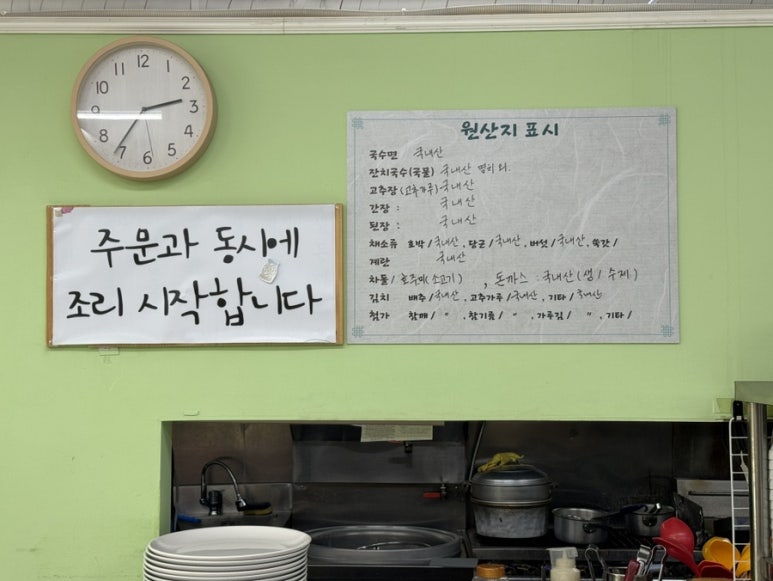 12
11
1
10
2
9
3
8
4
7
5
6
주문과 동시에
조리 시작합니다
원산지 표시
국수면 국내산
잔치국수(국물) 국내산 멸치 외.
고추장(고추가루)-국내산
간장 : 국내산
된장 : 국내산
채소류 호박/국내산, 당근/국내산, 버섯/국내산, 쑥갓/
계란 국내산
차돌/ 호주미(소고기), 돈까스 : 국내산(생/수제)
김치 배추/국내산, 고추가루/국내산, 기타/국내산
첨가 참깨/ 〃, 참기름/ 〃, 가루김/ 〃, 기타/